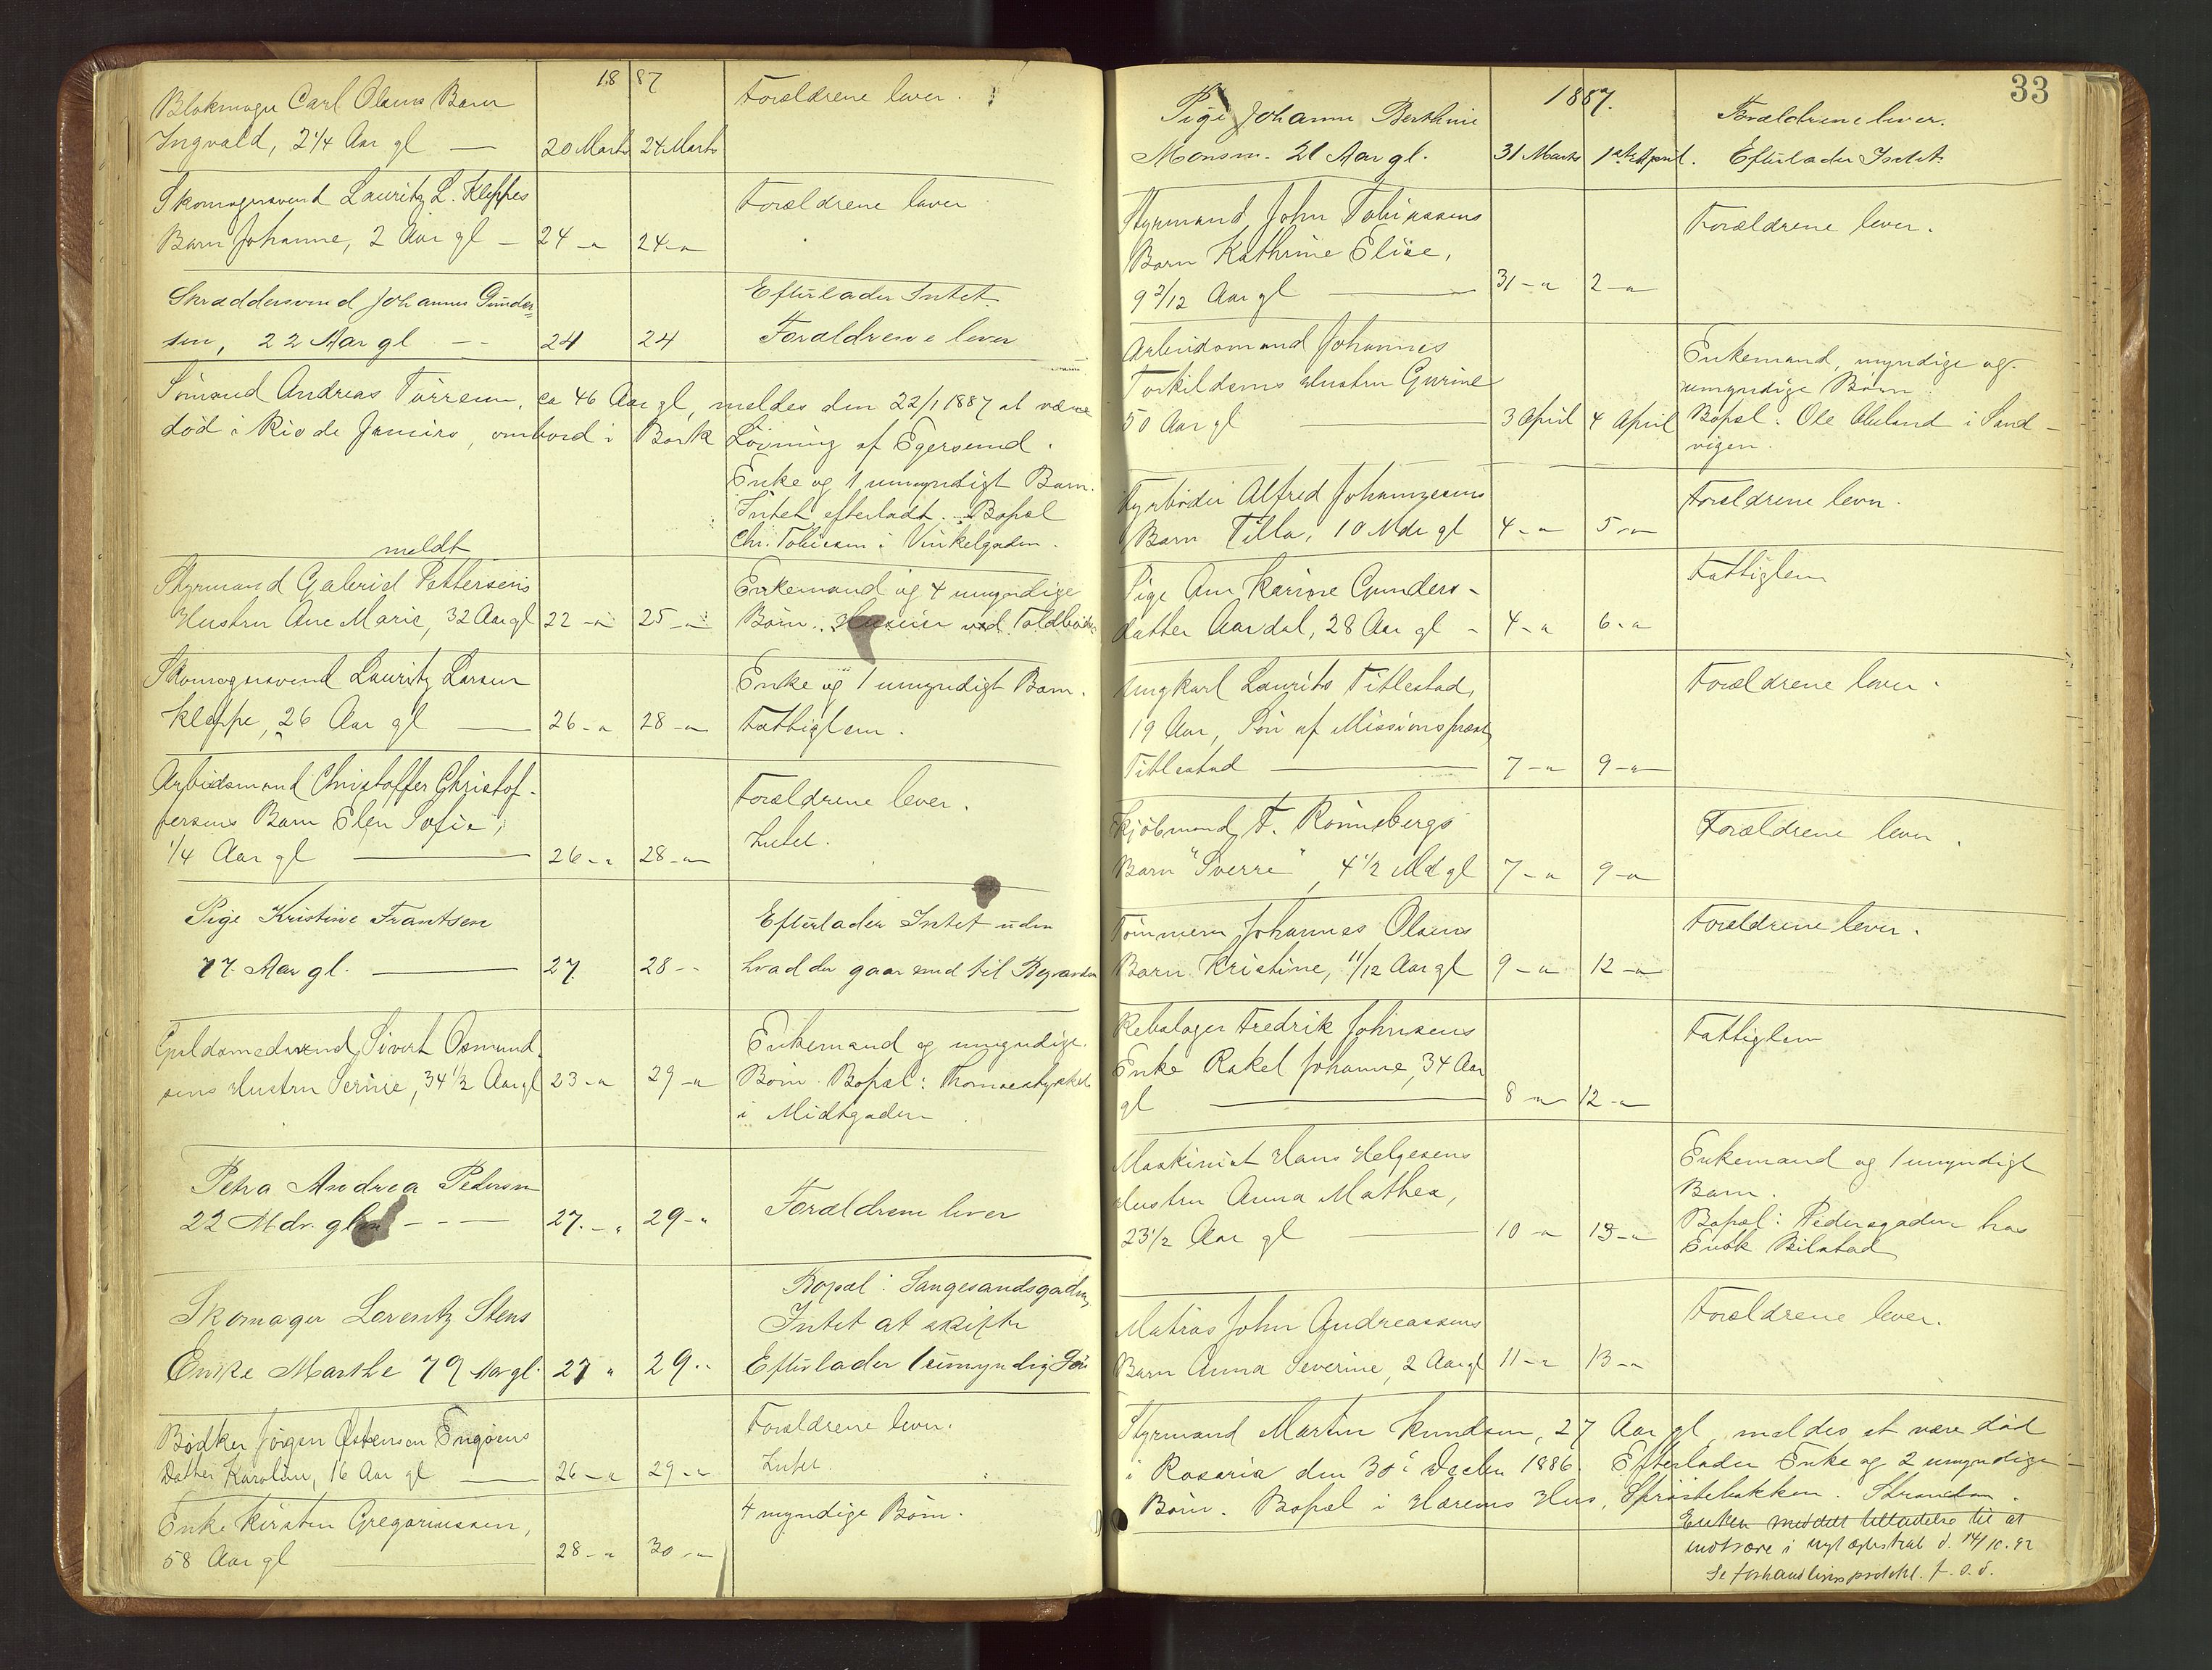 1887
Blokmager Carl Olsens Barn Forældrene lever.
Ingvald, 2 1/4 Aar gl — 20 Marts 24 Marts
Skomagersvend Lauritz L. Kleppes Forældrene lever
Barn Johanne, 2 Aar gl — 24 -"- 24 -"-
Skræddersvend Johannes Gunder= Efterlader Intet.
sen, 22 Aar gl -- 24 24 Forældrene lever
Sömand Andreas Törresen, ca 46 Aar gl, meldes den 22/1 1887 at være
död i Rio de Janeiro, ombord i Bark Lövning af Egersund.
Enke og 1 umyndigt Barn.
Intet efterladt. Bopæl
Chr. Tobiesen i Vinkelgaden.
meldt
Styrmand Gabriel Pettersens Enkemand og 4 umyndige
Hustru Ane Marie, 32 Aar gl 22 -"- 25 -"- Börn. ved Toldboden
Skomagersvend Lauritz Larsen Enke og 1 umyndigt Barn.
Kleppe, 26 Aar gl — 26 -"- 28 -"- Fattiglem.
Arbeidsmand Christoffer Christof- Forældrene lever.
fersens Barn Elen Sofie, Intet.
1/4 Aar gl — 26 -"- 28 -"-
Pige Kristine Frantsen Efterlader Intet uden
77 Aar gl. — 27 28 -- hvad der gaar med til Begravelsen
Guldsmedsvend Sivert Osmund- Enkemand og umyndige
sens Hustru Serine, 34 1/2 Aar gl 23 -"- 29 -"- Börn. Bopæl: Thomasstykket
i Midtgaden
Petra Andrea Pedersen
22 Mdr. gl — 27 -"- 29 -"- Forældrene lever
Bopæl: Langesandsgaden,
Skomager Lorentz Stens Intet at skifte
Enke Marthe 79 Aar gl. 27 " 29 " Efterlader 1 umyndig Sön
Bödker Jörgen Østensen Engöens Forældrene lever.
Datter Karoline, 16 Aar gl — 26 -"- 29 -"- Intet.
Enke Kirsten Gregoriussen, 4 myndige Börn.
58 Aar gl — 28 -"- 30 -"-
33
1887.
Pige Johanne Berthine Forældrene lever.
Monsen. 21 Aar gl. 31 Marts 1ste April. Efterlader Intet.
Styrmand John Tobiassens Forældrene lever.
Barn Kathrine Elise,
9 2/12 Aar gl — 31 -"- 2 -"-
Arbeidsmand Johannes Enkemand, myndige og
Torkildsens Hustru Gurine umyndige Börn
50 Aar gl — 3 April 4 April Bopæl. Ole Aluland i Sand-
vigen.
Fyrböder Alfred Johannesens Forældrene lever.
Barn Tilla, 10 Mdr gl 4 -"- 5 -"-
Pige Ane Karine Gunders- Fattiglem
datter Aardal, 28 Aar gl - 4 -"- 6 -"-
Ungkarl Laurits Titlestad, Forældrene lever.
19 Aar, Sön af Missionsprest
Titlestad — 7 -"- 9 -"-
Kjöbmand F. Rönnebergs Forældrene lever.
Barn "Sverre", 4 1/2 Md gl 7 -"- 9 -"-
Tömmerm Johannes Olsens Forældrene lever.
Barn Kristine, 11/12 Aar gl 9 -"- 12 -"-
Rebslager Fredrik Johnsens Fattiglem
Enke Rakel Johanne, 34 Aar
gl — 8 -"- 12 -"-
Maskinist Hans Helgesens Enkemand og 1 umyndigt
Hustru Anna Mathea, Barn.
23 1/2 Aar gl — 10 -"- 13 -"- Bopæl: Pedersgaden hos
Enke Bilstad
Matros John Andreassens Forældrene lever.
Barn Anna Severine, 2 Aar gl 11 -"- 13 -"-
Styrmand Martin Knudsen, 27 Aar gl, meldes at være död
i Rosario den 30' Decbr 1886. Efterlader Enke og 2 umyndige
Börn. Bopæl i Hærems Hus, Spröitebakken. Stranden.
Enken meddelt tilladelse til at
indtræde i nyt ægteskab d. 14/10.92
Se forhandlingsprotokl. f. o. d.